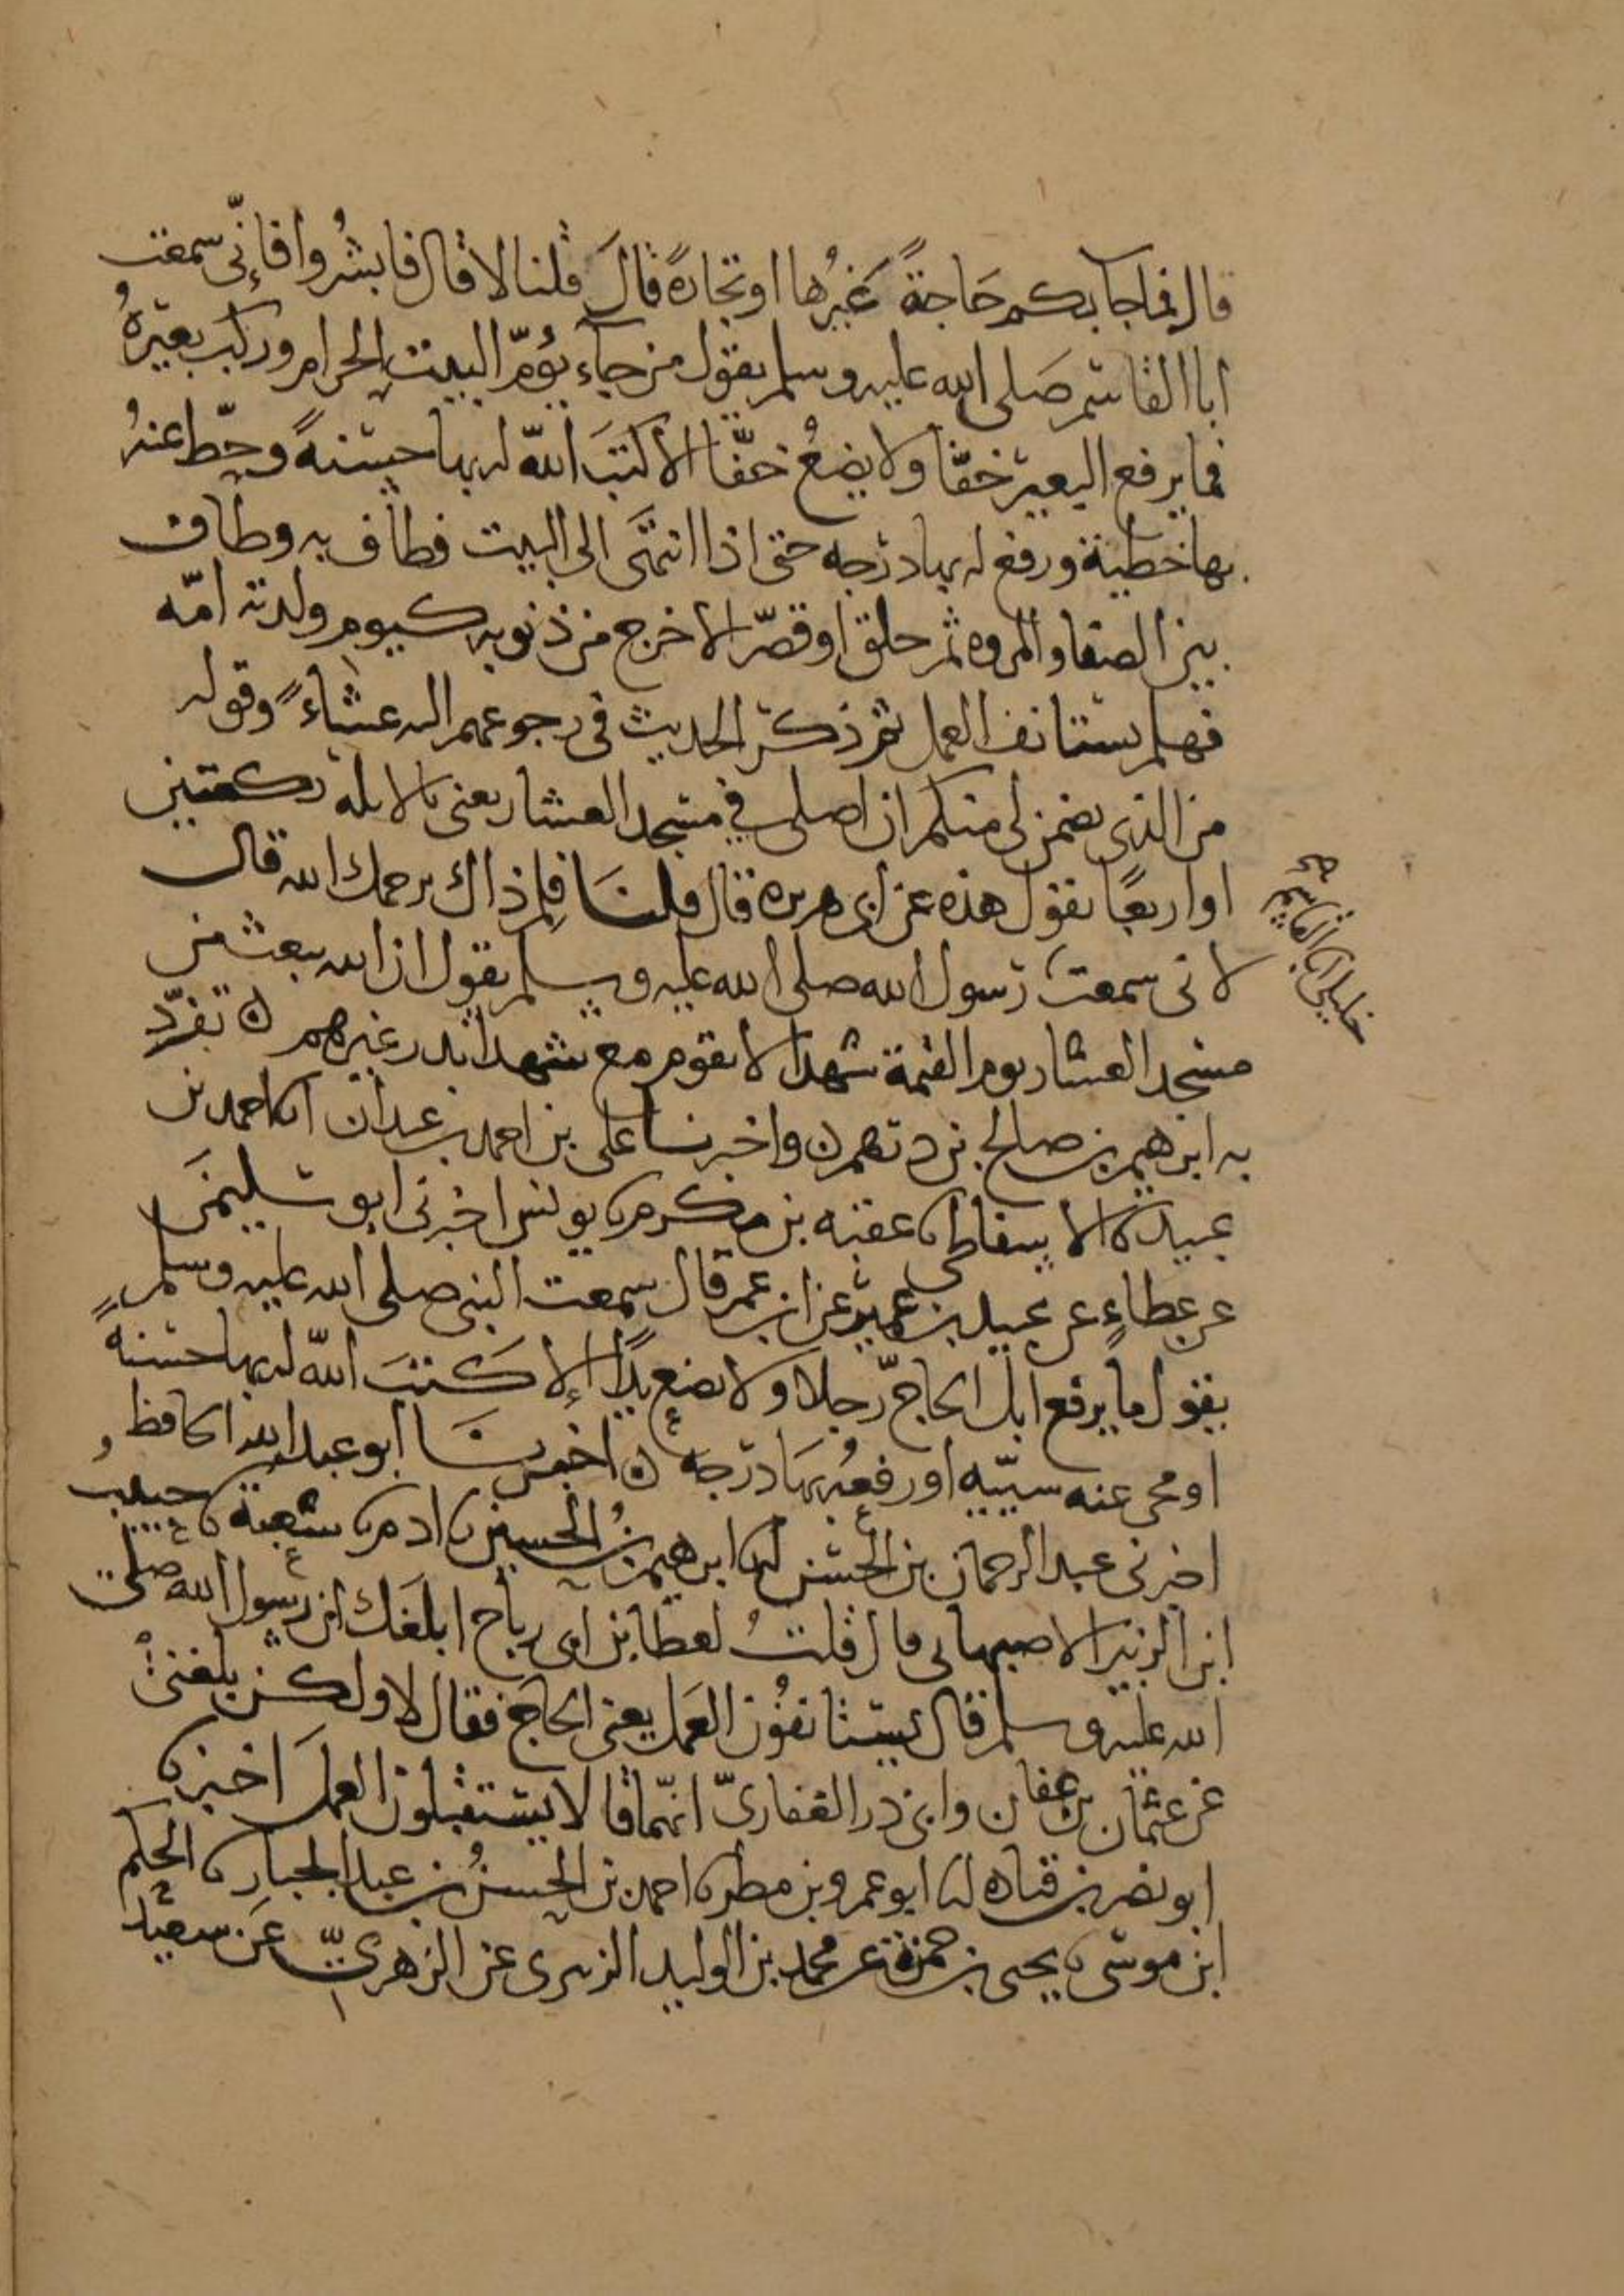 قال فما جا بكم حَاجةً غيرُها او تجارةً قالَ قلنا لا قال فابشرُوا فإنّي سمعت
ابا القاسم صَلى الله عليه وسلم يقول من جاء يؤمّ البيت الحرام وركب بعيرهُ
فما يرفع البعير خفّا ولا يضعُ خفّا الا كتبَ اللّه له بها حسنةً وحطّ عنهُ
بها خطية ورفع له بها درجه حتى اذا انتهَى الى البيت فطاف به وطاف
بين الصفا والمروه ثم حلق او قصّر الا خرج من ذنوبه كيوم ولدته امّه
فهلم يستانف العمل ثم ذكر الحديث في رجوعهم اليه عشاءً وقوله
من الذى يضمن لى منكم ان اصلى في مسجد العشار يعنى بالابله ركعتين
او اربعًا يقول هذه عن ابى هريره قال قلنَا فلم ذاك يرحمك الله قال
لانى سمعت رسول الله صلى الله عليه وسلم يقول ان الله يبعث من
خليلي ابا القاسم صح
مسجد العشار يوم القيمة شهدا لا يقوم مع شهدا بدر غيرهم ه تفرّد
به ابرهيم بن صالح بن درهم ه واخبرنا على بن احمد بن عبدان انا احمد بن
عبيد نا الاسفاطى نا عقبه بن مكرم نا يونس اخبرنى ابو سليمن
عن عطاءٍ عن عبيد بن عمير عن ابن عمر قال سمعت النبى صلى الله عليه وسلم
يقول ما يرفع ابل الحاجّ رجلا ولا يضع يدًا إلا كَتبَ اللّه له بها حسنةً
او محى عنه سيّيه او رفعهُ بهَا درجه ه اخبرنَا ابو عبد الله الحافظ
اخبرنى عبد الرحمان بن الحسن نا ابرهيم بنُ الحسين نا ادم نا شعبة نا حبيبُ
ابن الزبير الاصبهانى قال قلتُ لعطا بن ابى رباح ابلغَك ان رسول الله صلى
الله عليه وسلم قال يستانفُون العَمل يعنى الحاج فقال لا ولكن بلغنى
عن عثمان بن عفان وابى ذر الغفارىّ انهّما قالا يستقبلون العملَ اخبرنا
ابو نصر بن قتاده انا ابو عمرو بن مطر نا احمد بن الحسنُ بن عبد الجبار نا الحكم
ابن موسى نا يحيى بن حمزة عن محمد بن الوليد الزبيرى عن الزهرىّ عَن سعيد